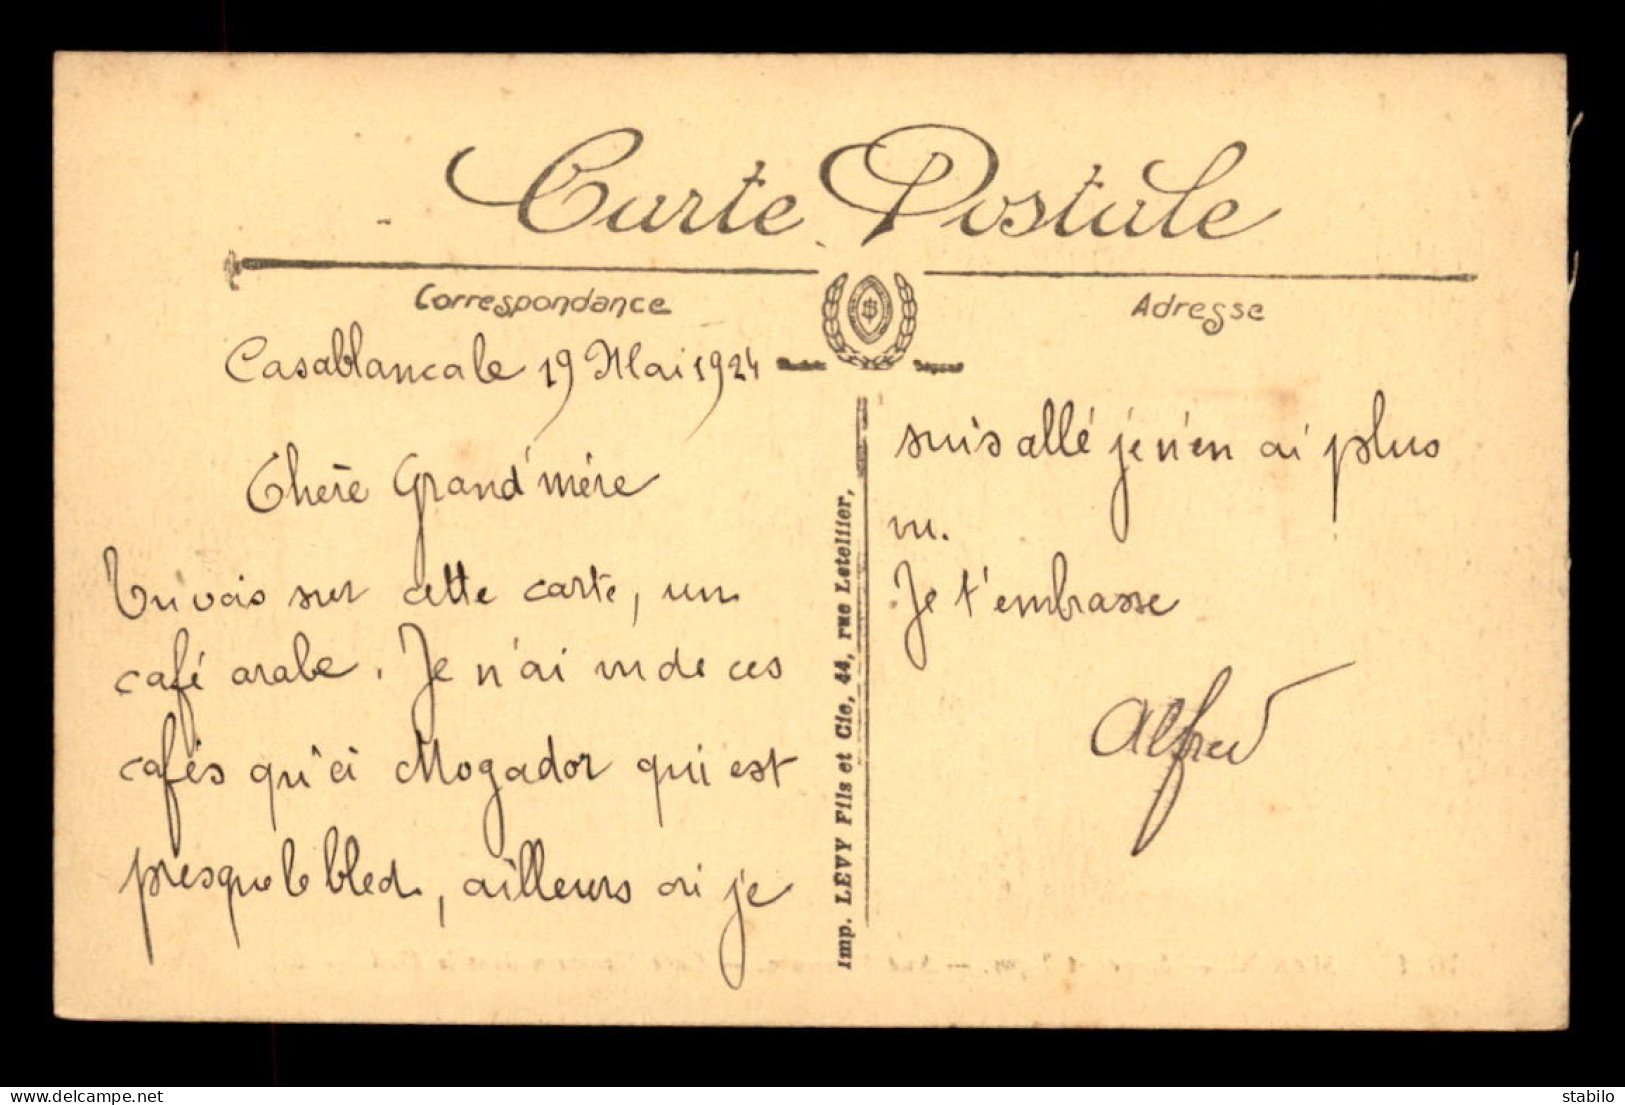 Carte Postale
Correspondance
Adresse
Casablanca le 19 Mai 1924
Chère Grand'mère
Tu vois sur cette carte, un
café arabe. Je n'ai vu de ces
cafés qu'à Mogador qui est
presque le bled, ailleurs où je
suis allé je n'en ai plus
vu.
Je t'embrasse
Alfred
Imp. LEVY Fils et Cie, 44, rue Letellier,
stabilo
delcampe.net